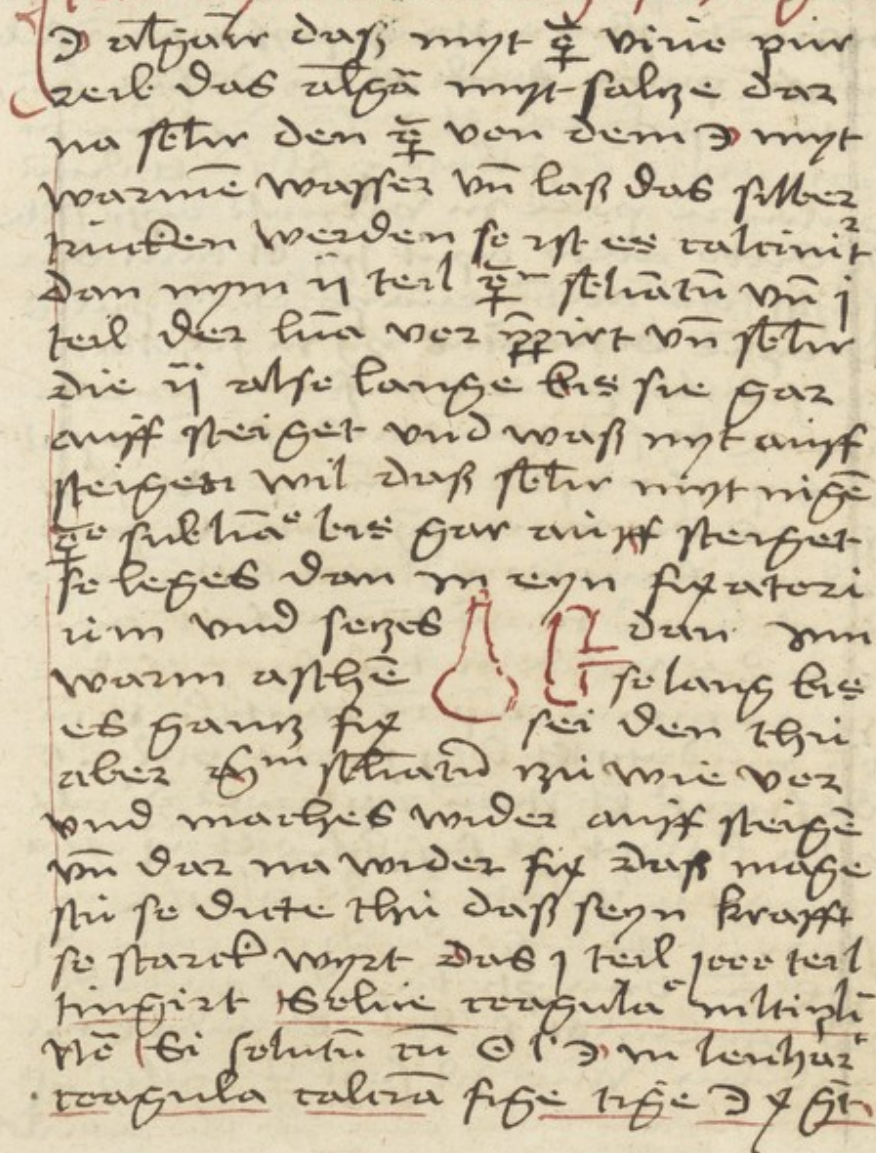 ☽ algaīr daß myt ☿ vive pur
reib das algā myt saltze dar
na sblir den ☿ von dem ☽ myt
warmē wasser vn̄ laß das silber
trucken werden so ist es calcinirt
dan nym ii teil ☿ sbliatū vn̄ i
teil der luā vor p̄p̄irt vn̄ sblir
die ii also lange bis sie gar
auff steiget vnd waß nyt auff
steigen wil daß sblir myt nigē
☿ bis gar auff steiget
so leges dan in eyn fixatori
um vnd setzes dan inn
warm aschē so lang bis
es gantz fix sei den thu
aber sbliatū tzu wie vor
vnd maches wider auff steigē
vn̄ dar na wider fix daß mage
stu so dicte thu daß seyn krafft
so starck wyrt das i teil 1000 teil
tingirt Solue coagula mltipli
Si solutū cū ☉ ł ☽ in lenhar
coagula calcīa fige tīge ☽